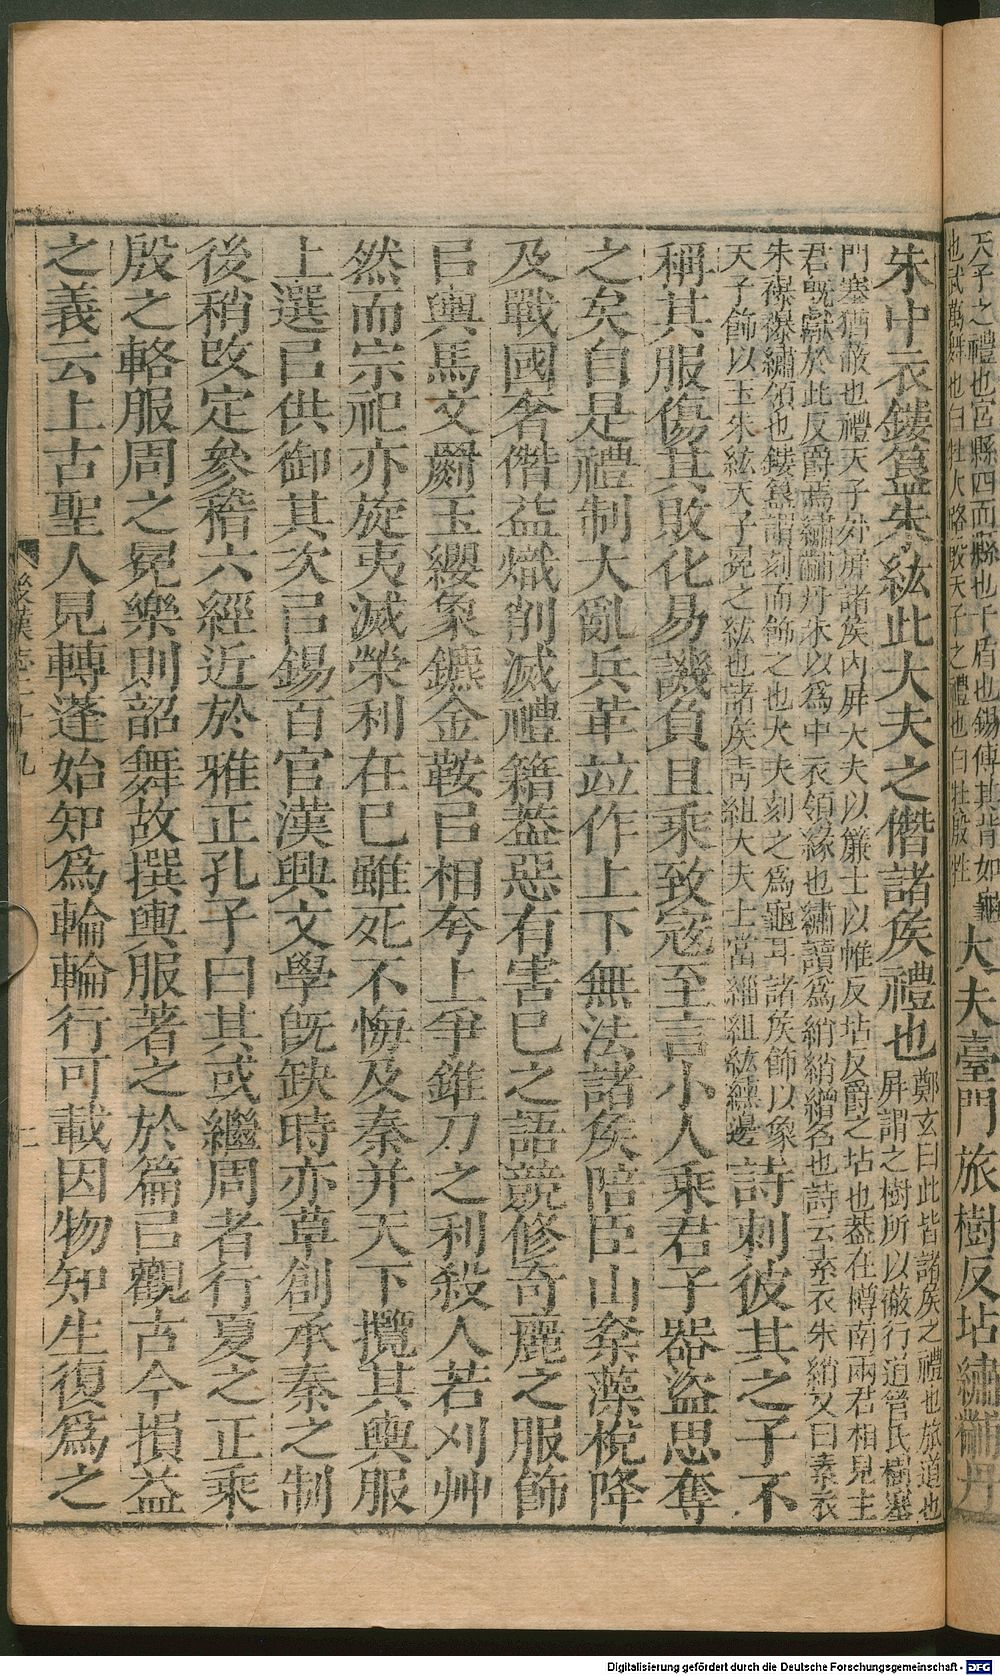 天子之禮也宮縣四面縣也干盾也錫傅其背如龜
也武萬舞也白牡大路殷天子之禮也白牡殷牲
大夫臺門旅樹反坫繡黼丹
朱中衣鏤簋朱紘此大夫之僭諸侯禮也
鄭玄曰此皆諸侯之禮也旅道也
屏謂之樹所以蔽行道管氏樹塞
門塞猶蔽也禮天子外屏諸侯內屏大夫以簾士以帷反坫反爵之坫也葢在罇南兩君相見主
君旣獻於此反爵焉繡黼丹朱以爲中衣領緣也繡讀爲綃綃繒名也詩云素衣朱綃又曰素衣
朱襮襮繡領也鏤簋謂刻而飾之也大夫刻之爲龜耳諸侯飾以象
天子飾以玉朱紘天子冕之紘也諸侯靑組大夫士當緇組紘纁邊
詩刺彼其之子不
稱其服傷其敗化易譏負且乘致寇至言小人乘君子器盜思奪
之矣自是禮制大亂兵革竝作上下無法諸侯陪臣山楶藻梲降
及戰國奢僭益熾削滅禮籍葢惡有害己之語競修奇麗之服飾
㠯輿馬文罽玉纓象鑣金鞍㠯相夸上爭錐刀之利殺人若刈艸
然而宗祀亦旋夷滅榮利在己雖死不悔及秦并天下攬其輿服
上選㠯供御其次㠯錫百官漢興文學旣缺時亦草創承秦之制
後稍改定參稽六經近於雅正孔子曰其或繼周者行夏之正乘
殷之輅服周之冕樂則韶舞故撰輿服著之於篇㠯觀古今損益
之義云上古聖人見轉蓬始知爲輪輪行可載因物知生復爲之
後漢志二十九
二
Digitalisierung gefördert durch die Deutsche Forschungsgemeinschaft - DFG